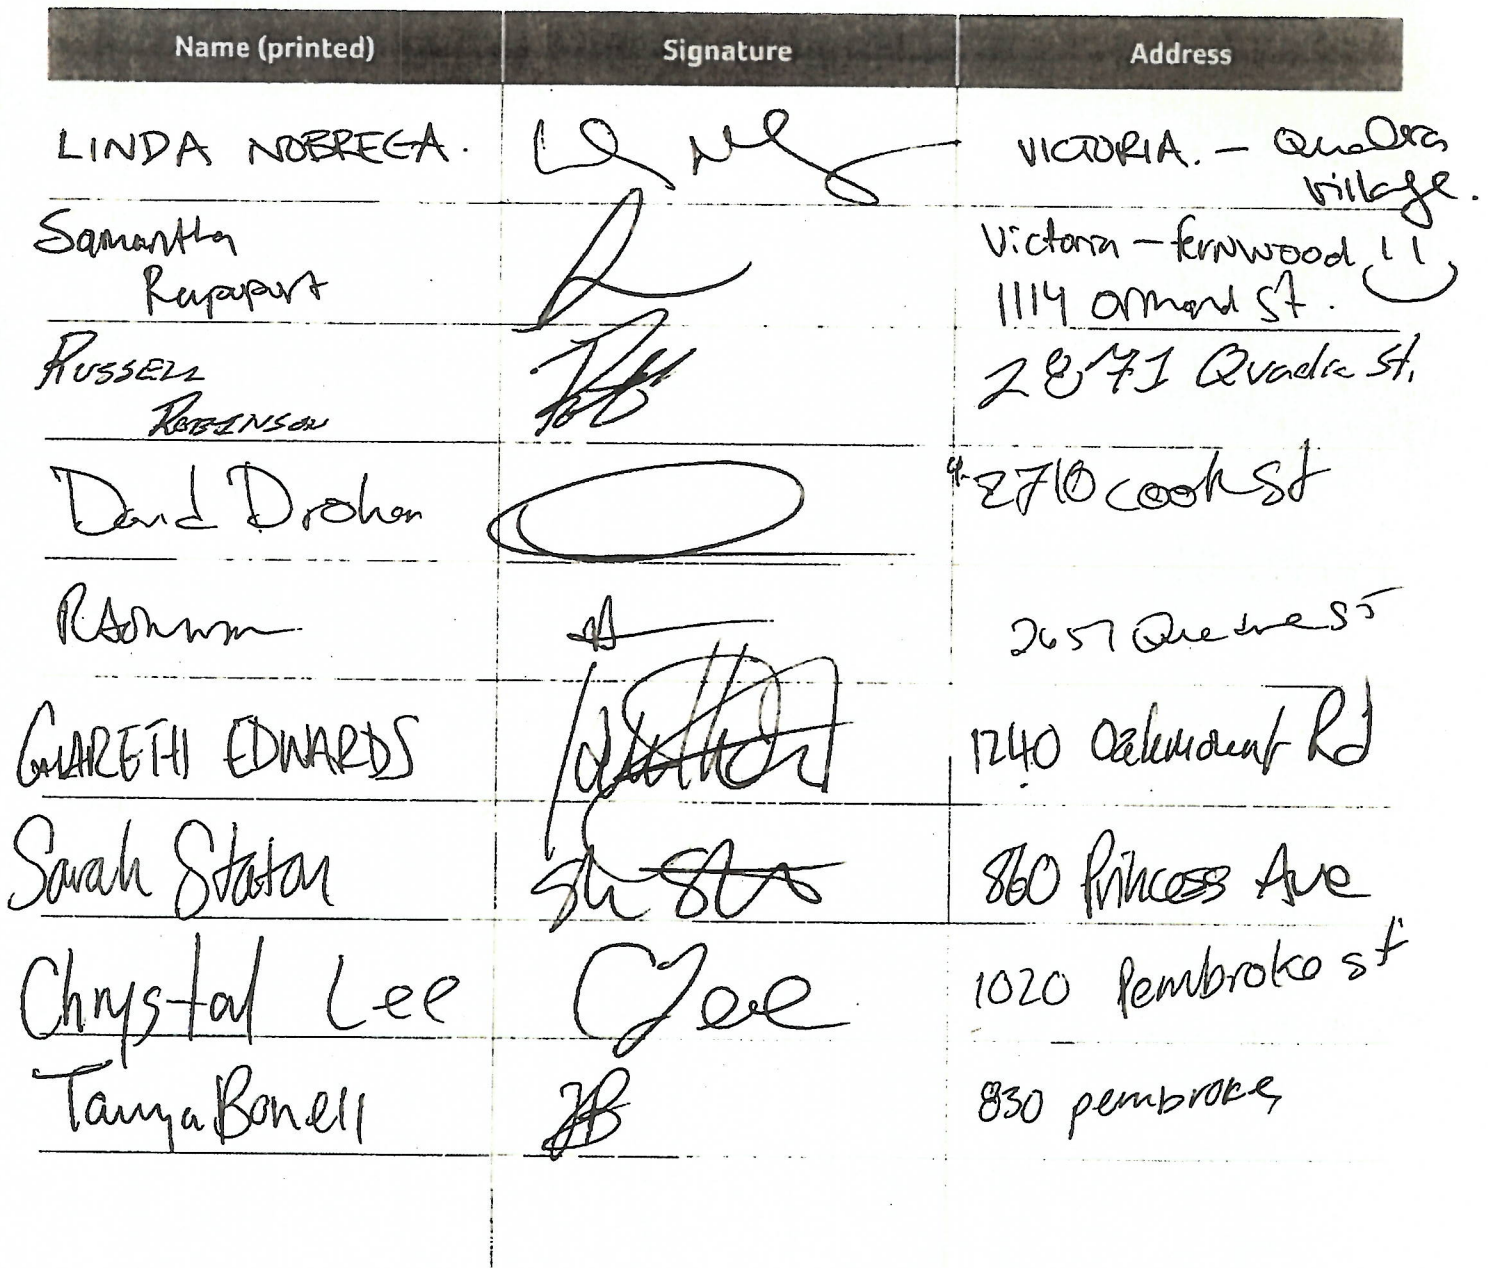 Name (printed) Signature Address
LINDA NOBREGA. VICTORIA. - Quadra
village.
Samantha Victoria - fernwood !!
Rapaport 1114 Ormond St.
RUSSELL 2871 Quadra St.
ROBINSON
David Drohan 2710 Cook St
2657
GARETH EDWARDS 1240 Oakmount Rd
Sarah Staton 860 Princess Ave
Chrystal Lee CLee 1020 Pembroke st
Tanya Bonell TB 830 pembroke